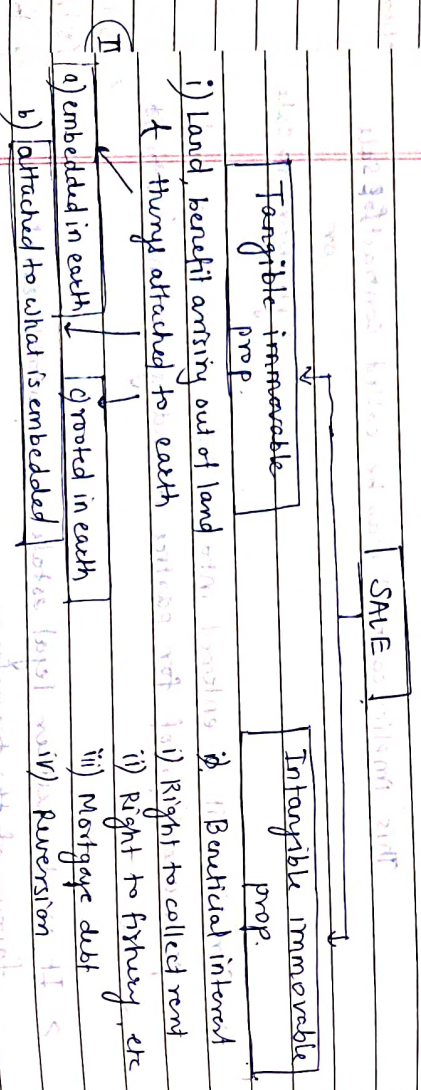 SALE
Tangible immovable
prop.
i) Land, benefit arising out of land
& things attached to earth
a) embedded in earth
c) rooted in earth
b) attached to what is embedded
II
Intangible immovable
prop.
i) Beneficial interest
i) Right to collect rent
ii) Right to fishery, etc
iii) Mortgage debt
iv) Reversion